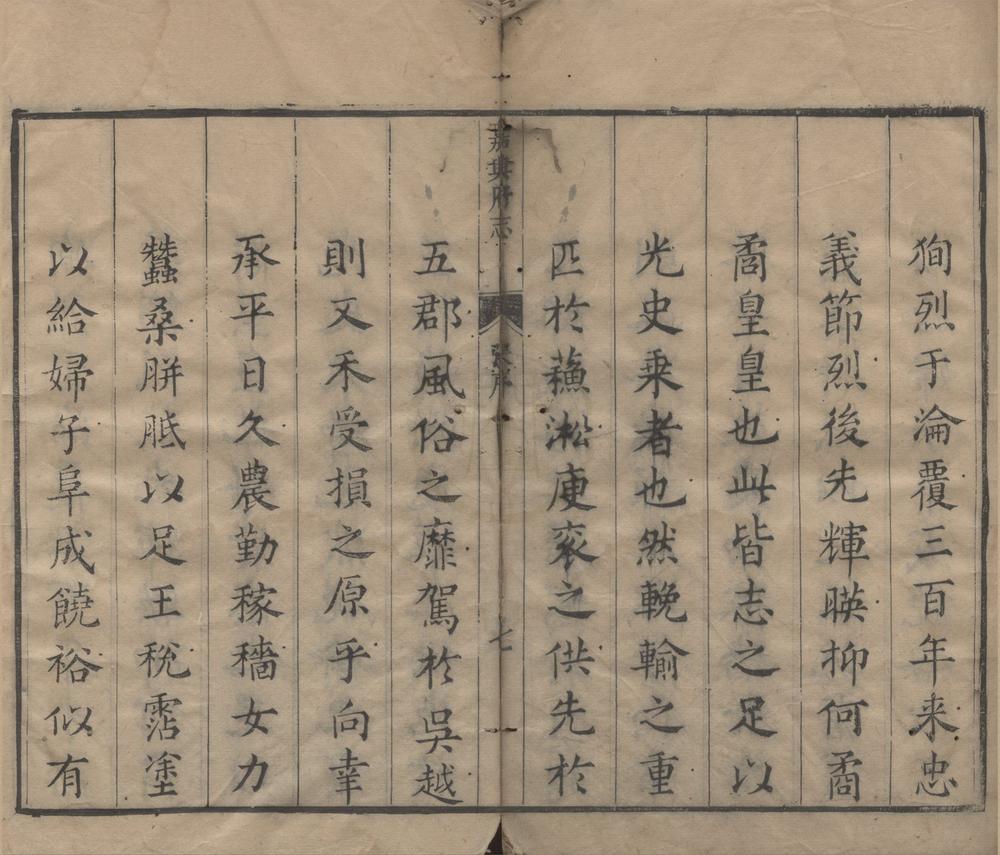 狥烈于淪覆三百年来忠
義節烈後先輝暎抑何矞
矞皇皇也此皆志之足以
光史乗者也然輓輸之重
匹於蘓淞庚衮之供先於
嘉興府志
張序
七
五郡風俗之靡駕於吳越
則又禾受損之原乎向幸
承平日久農勤稼穡女力
蠶桑胼胝以足王稅霑塗
以給婦子阜成饒裕似有